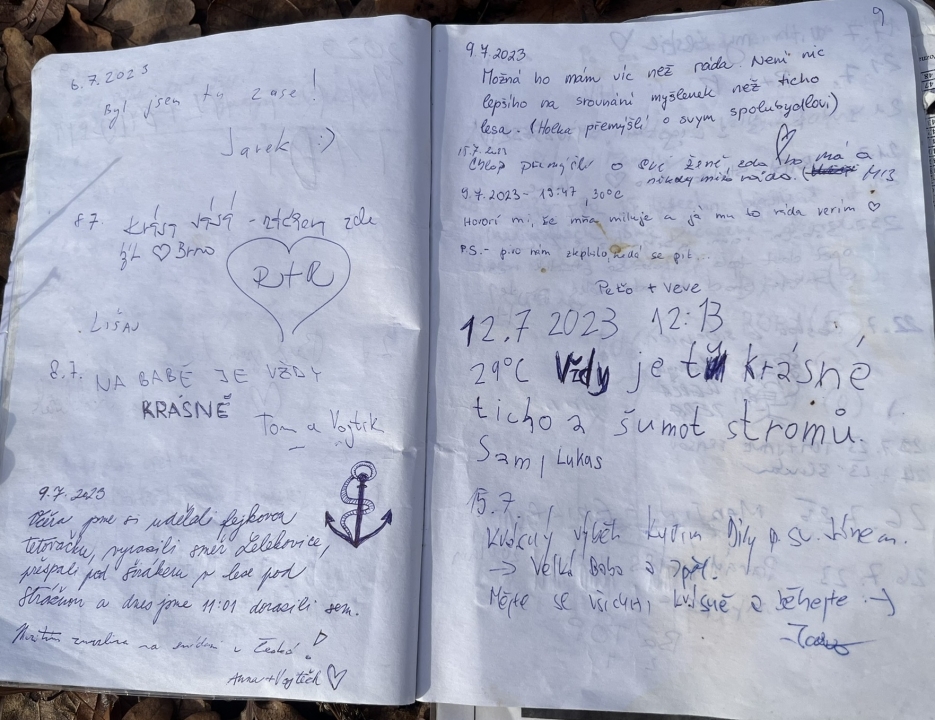 6.7.2023
Byl jsem tu zase!
Jarek :)
8.7. Krása
žít ♡ Brno
R+R
LIŠAJ
8.7. NA BABĚ JE VŽDY
KRÁSNĚ
Tom a Vojtík
9.7.2023
Včera jsme si udělali fejkovou
tetovačku, vyrazili směr Lelekovice,
přespali pod širákem v lese pod
a dnes jsme 11:01 dorazili sem.
na snídani v České!
Anna + Vojtěch ♡
9
9.7.2023
Možná ho mám víc než ráda. Není nic
lepšího na srovnání myšlenek než ticho
lesa. (Holka přemýšlí o svym spolubydlovi)
15.7.2023
Chlap přemýšlí o své ženě zda ho má a
9.7.2023 - 19:47, 30°C
Hovorí mi, že mňa miluje a já mu to ráda verím ♡
PS.- pivo nám zteplilo, nedá se pit...
Peťo + Veve
12.7 2023 12:13
29°C Vždy je tu krásné
ticho a šumot stromů.
Sam, Lukas
15.7.
Krásný výběh Kytin
→ Velká Baba a zpět.
Mějte se všichni krásně a běhejte :-)